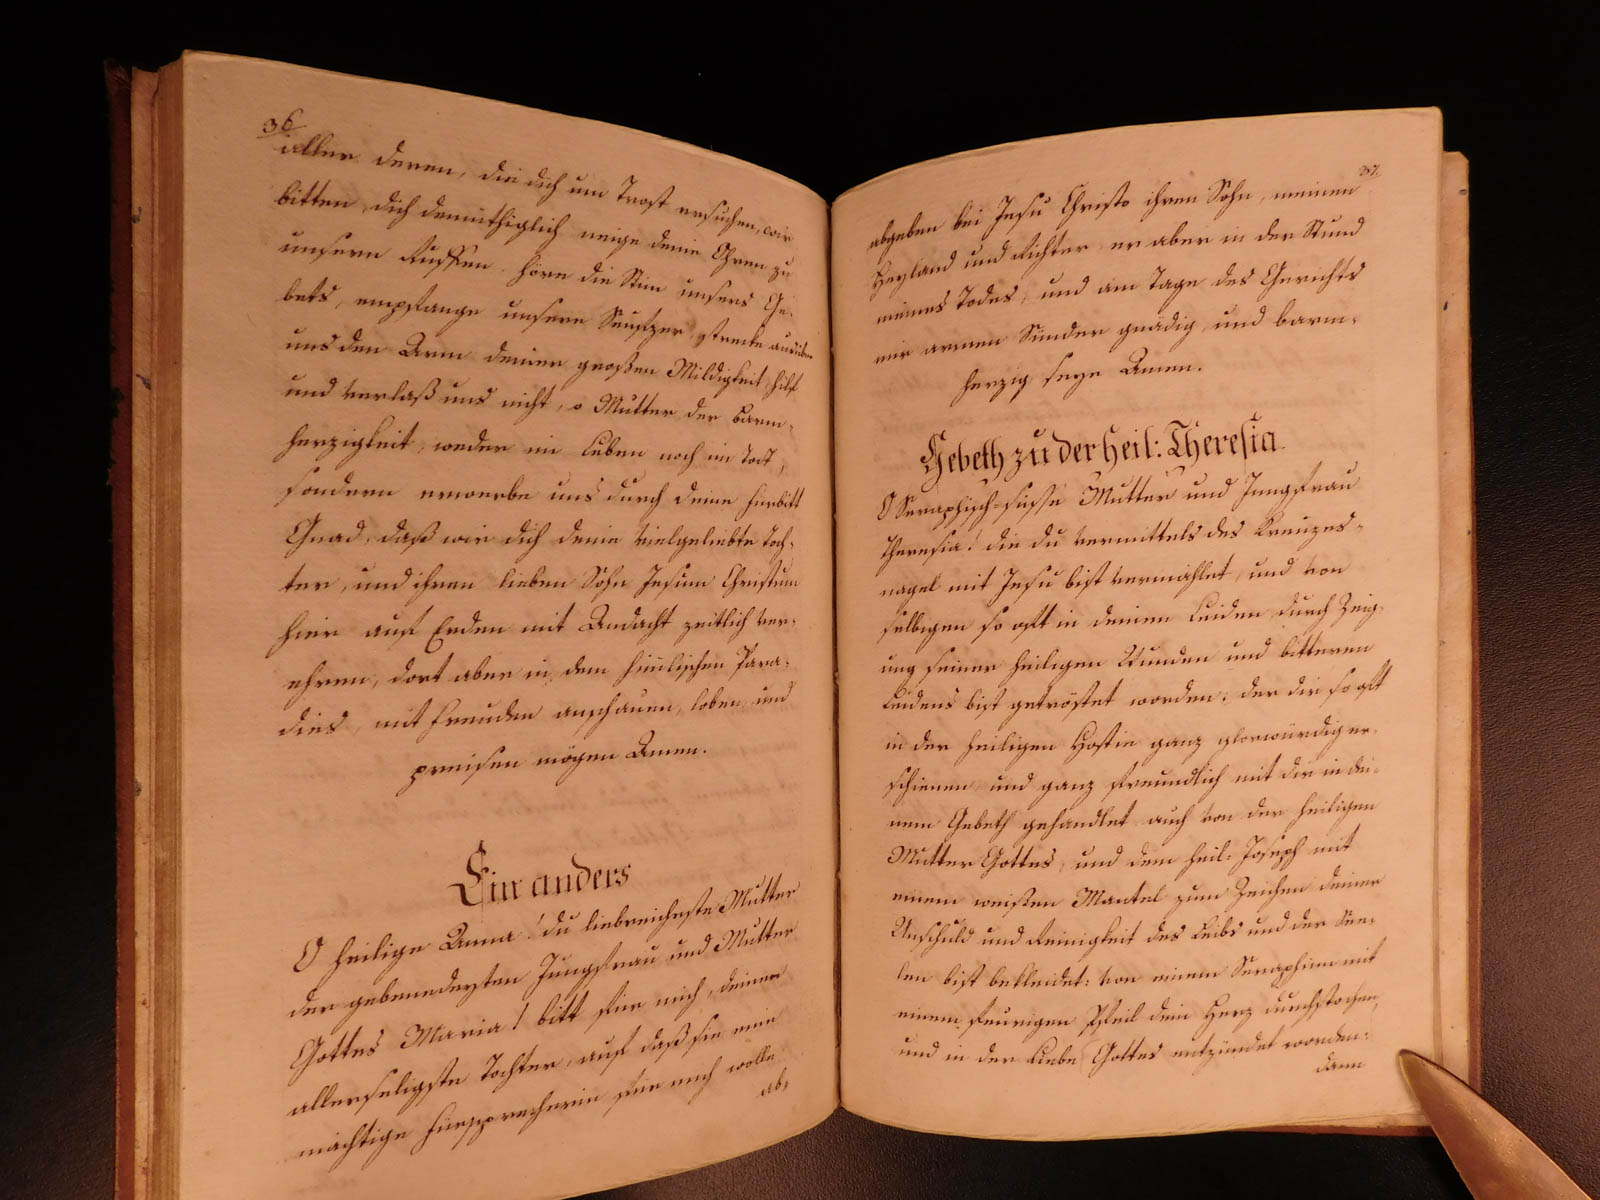 36
aller deren, die dich um Trost ersuchen, wir
bitten dich demüthiglich neige deine Ohren zu
unsern Russen. höre die Stim unsers Ge-
bets, empfange unsere Seufzer, strecke aus über
uns den Arm deiner großen Mildigkeit, hilf
und verlaß uns nicht, o Mutter der Barm-
herzigkeit, weder im Leben noch im Tod,
sondern erwerbe uns durch deine Fürbitt
Gnad, daß wir dich deine vielgeliebte Toch-
ter, und ihren lieben Sohn Jesum Christum
hier auf Erden mit Andacht zeitlich ver-
ehren, dort aber in dem himlischen Para-
dies, mit Freuden anschauen, loben, und
preisen mögen Amen.
Ein anders
O heilige Anna! du liebreicheste Mutter
der gebenedeyten Jungfrau und Mutter
Gottes Maria! bitt für mich, deiner
allerseligste Tochter, auf daß sie eine
mächtige Fürsprecherin für mich wolle
ab-
37
abgeben bei Jesu Christo ihren Sohn, meinen
Heyland und Richter er aber in der Stund
meines Todes, und am Tage des Gerichts
mir armen Sünder gnädig und barm-
herzig seye Amen.
Gebeth zu der heil: Theresia
O Seraphisch-süsse Mutter und Jungfrau
Theresia! die du vermittels des Kreuzes-
nagel mit Jesu bist vermählet, und von
selbigen so oft in deinen Leiden durch Zeig-
ung seiner heiligen Wunden und bitteren
Leidens bist getröstet worden; der dir so oft
in der heiligen Hostie ganz glorwürdig er-
schienen und ganz freundlich mit dir in dei-
nem Gebeth gehandlet auch von der heiligen
Mutter Gottes, und dem heil: Joseph mit
einem weißen Mantel zum Zeichen deiner
Unschuld und Reinigkeit des Leibs und der See-
len bist bekleidet: von einem Seraphinn mit
einem feurigen Pfeil dein Herz durchstochen,
und in der Liebe Gottes entzündet worden:
dann